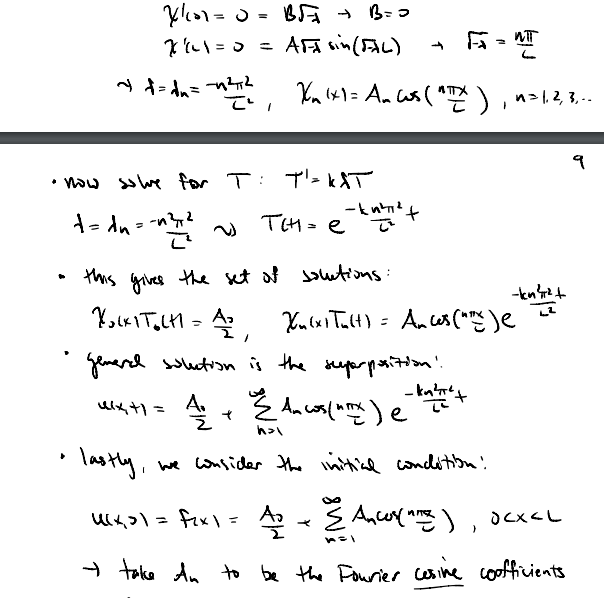 X'(0) = 0 = B√-λ → B=0
X'(L) = 0 = A√-λ sin(√-λL) → √-λ = nπ/L
⇝ λ=λn= -n²π²/L², Xn(x)= An cos(nπx/L), n=1,2,3,..
9
• now solve for T: T' = kλT
λ=λn = -n²π²/L² ⇝ T(t) = e^(-kn²π²/L² t)
• this gives the set of solutions:
X₀(x)T₀(t) = A₀/2, Xn(x)Tn(t) = An cos(nπx/L)e^(-kn²π²/L² t)
• general solution is the superposition:
u(x,t) = A₀/2 + ∞Σn=1 An cos(nπx/L) e^(-kn²π²/L² t)
• lastly, we consider the initial condition:
u(x,0) = f(x) = A₀/2 + ∞Σn=1 An cos(nπx/L), 0<x<L
→ take An to be the Fourier cosine coefficients